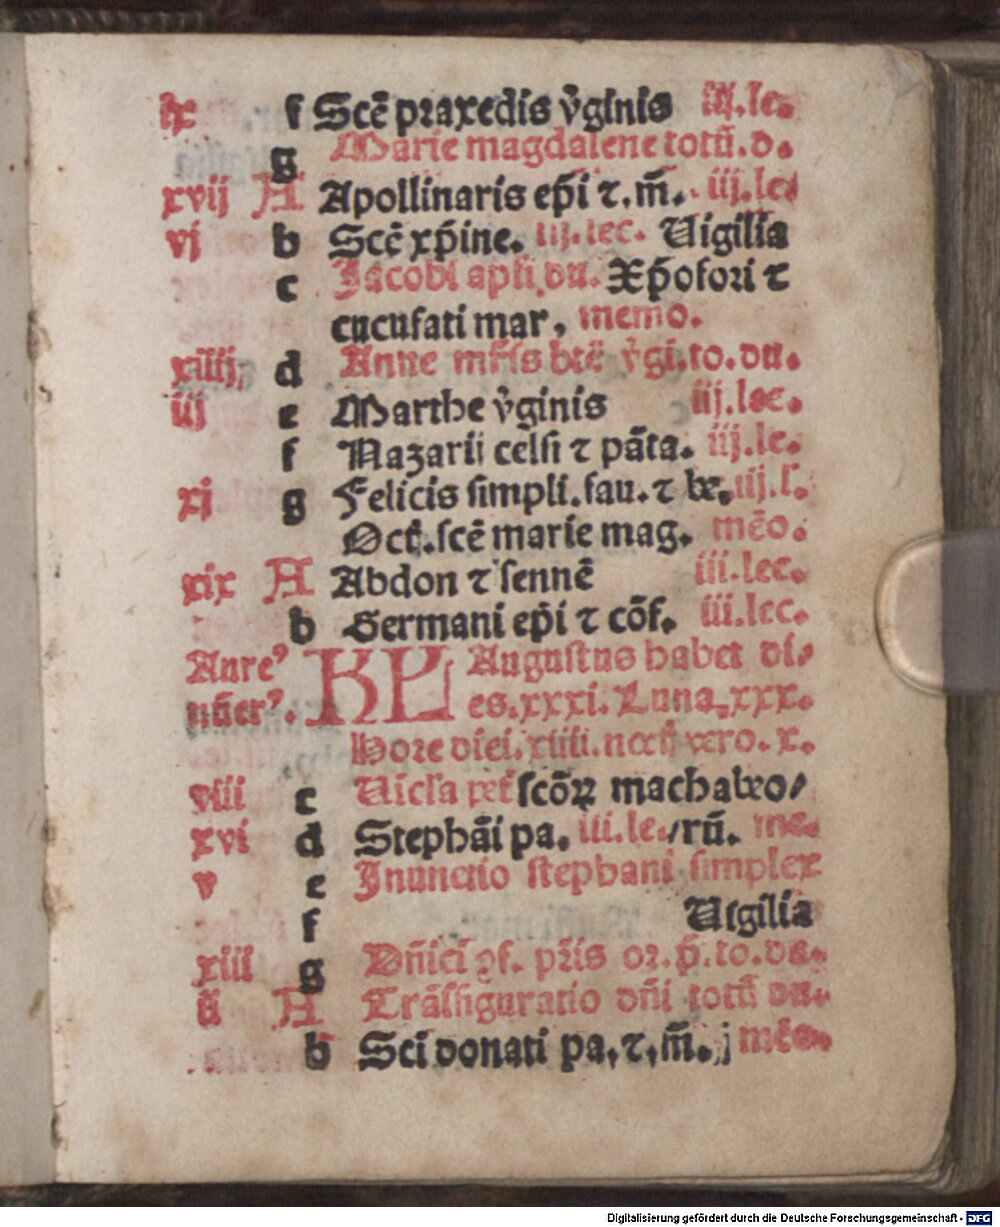 ix f Scē praxedis v̄ginis iij.le.
g Marie magdalene totū.d.
xvij A Apollinaris ep̄i ⁊.m̄. iij.le
vj b Scē xp̄ine. iij.lec. Uigilia
c Jacobi apłi.du. Xp̄ofori ⁊
cucufati mar, memo.
xiiij d Anne mr̄is btē v̄gi.to.du.
iij e Marthe v̄ginis iij.lec.
f Nazarii celsi ⁊ pāta. iij.le.
xi g Felicis simpli.fau.⁊ be.iij.l.
Oct̄.scē marie mag. mēo.
xix A Abdon ⁊ sennē iii.lec.
b Germani ep̄i ⁊ cōf. iii.lec.
Aureꝰ KL Augustus habet di/
nūerꝰ. es.xxxi. Luna.xxx.
Hore diei.xiiii.noctū vero.x.
viii c Uicla pet̄ scōꝝ machabeo/
xvi d Stephāi pa. iii.le./rū. me.
v e Inuentio stephani simplex
f Uigilia
xiii g Dn̄ici ꝯf. pr̄is or.p̄.to.du.
ii A Trāsfiguratio dn̄i totū du.
b Sci donati pa.⁊.m̄. mēo.
Digitalisierung gefördert durch die Deutsche Forschungsgemeinschaft - DFG